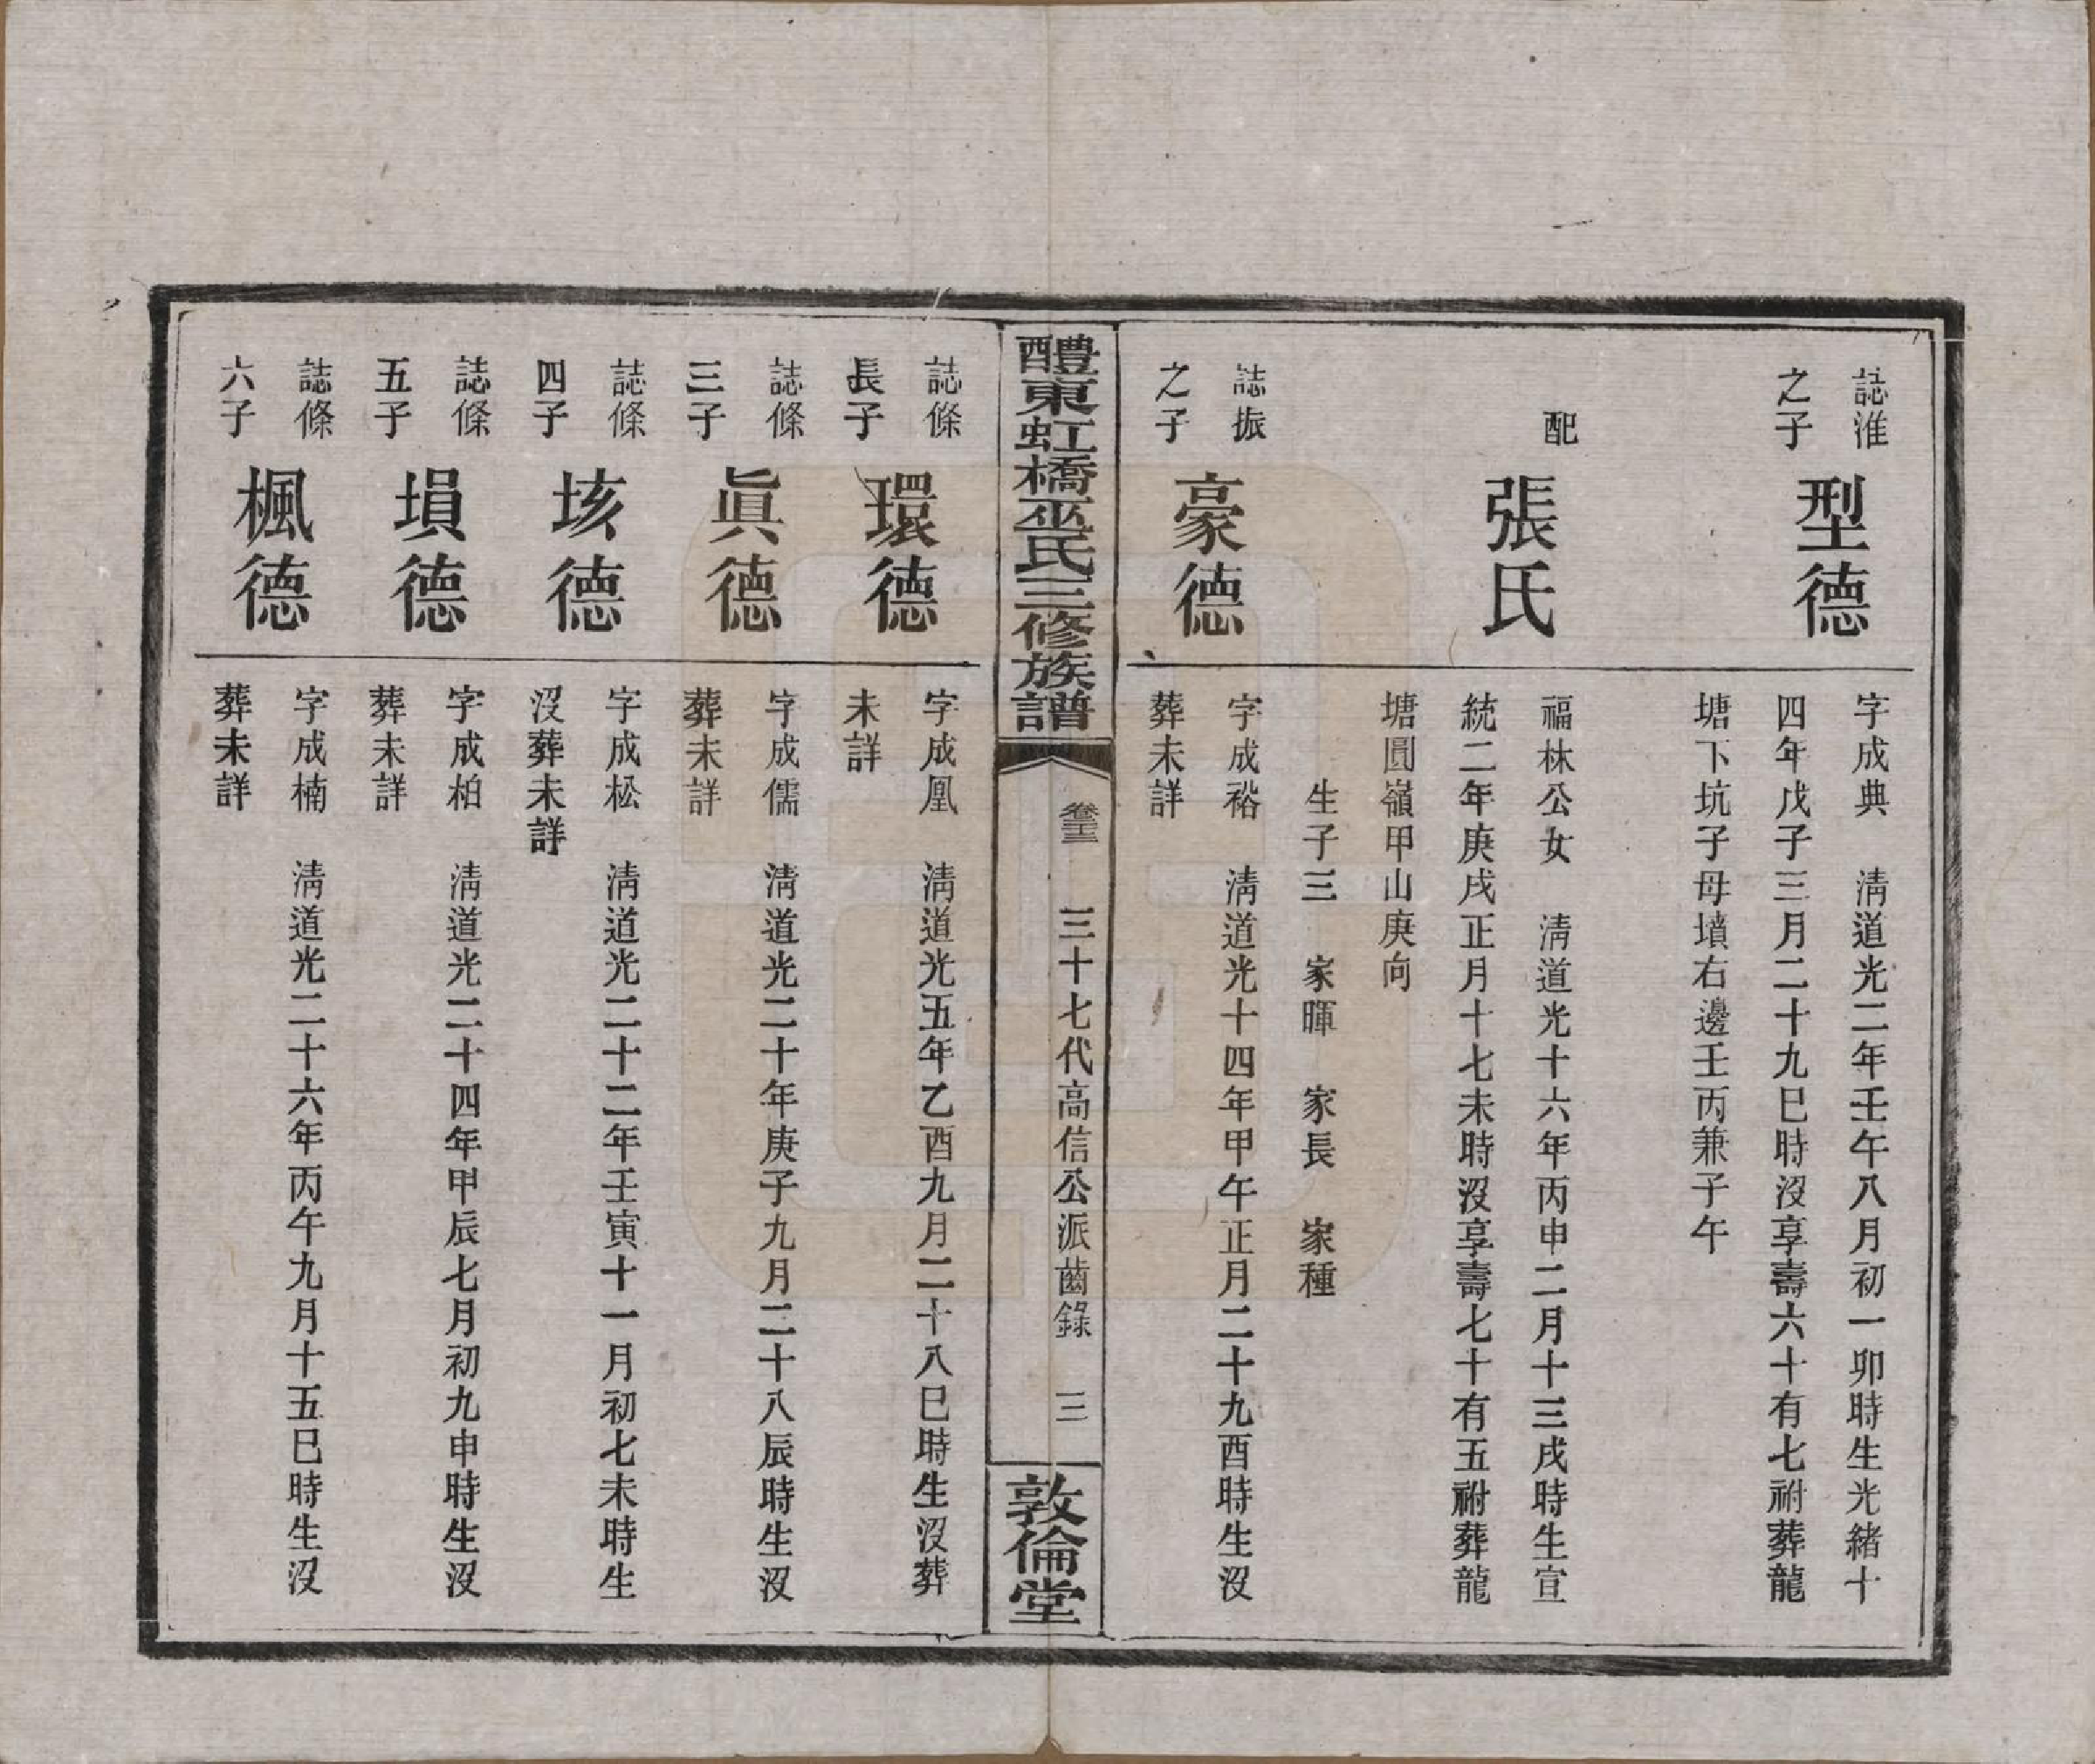 誌淮
之子
型德
字成典　淸道光二年壬午八月初一卯時生光緒十
四年戊子三月二十九巳時沒享壽六十有七祔葬龍
塘下坑子母墳右邊壬丙兼子午
配
張氏
福林公女　淸道光十六年丙申二月十三戌時生宣
統二年庚戌正月十七未時沒享壽七十有五祔葬龍
塘圓嶺甲山庚向
生子三　家暉　家長　家種
誌振
之子
豪德
字成裕　淸道光十四年甲午正月二十九酉時生沒
葬未詳
醴東虹橋巫氏三修族譜
卷三十三　三十七代高信公派齒錄　三
敦倫堂
誌條
長子
環德
字成凰　淸道光五年乙酉九月二十八巳時生沒葬
未詳
誌條
三子
眞德
字成儒　淸道光二十年庚子九月二十八辰時生沒
葬未詳
誌條
四子
垓德
字成松　淸道光二十二年壬寅十一月初七未時生
沒葬未詳
誌條
五子
塤德
字成柏　淸道光二十四年甲辰七月初九申時生沒
葬未詳
誌條
六子
楓德
字成楠　淸道光二十六年丙午九月十五巳時生沒
葬未詳